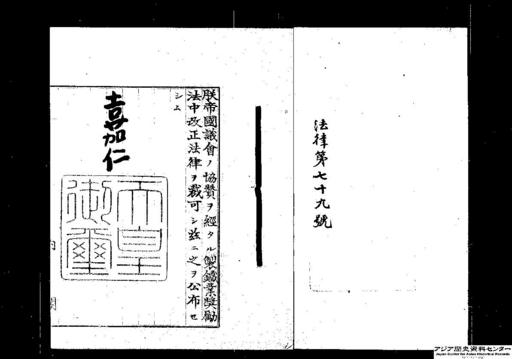 法律第七十九號
朕帝國議會ノ協贊ヲ經タル製鐵業奬勵
法中改正法律ヲ裁可シ茲ニ之ヲ公布セ
シム
嘉仁
天皇
御璽
内閣
アジア歴史資料センター
Japan Center for Asian Historical Records